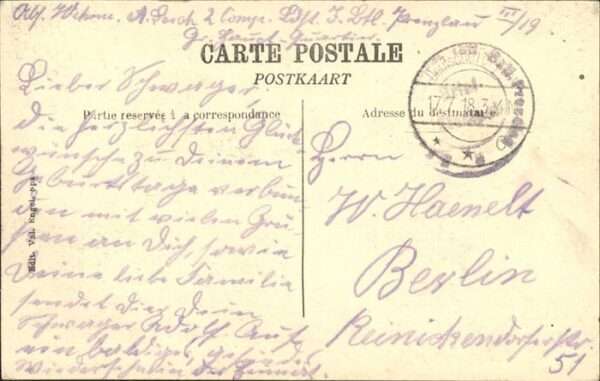 2 Comp. Ldst. I. Btl. Prenzlau III/19
Gr. Haupt-Quartier
CARTE POSTALE
POSTKAART
Partie reservée à la correspondance
Adresse du destinataire
17.7.18.3
Lieber Schwager.
Die herzlichsten Glück
wünsche zu Deinem
Geburtstage verbun
den mit vielen Grü-
ßen an Dich, sowie
Deine liebe Familie
sendet Dir Dein
Schwager Adolf. Auf
ein baldiges, gesundes
Wiedersehn in der Heimat.
Herrn
W. Haenelt
Berlin
Reinickendorferstr.
51
Edit. Vul. Engel.